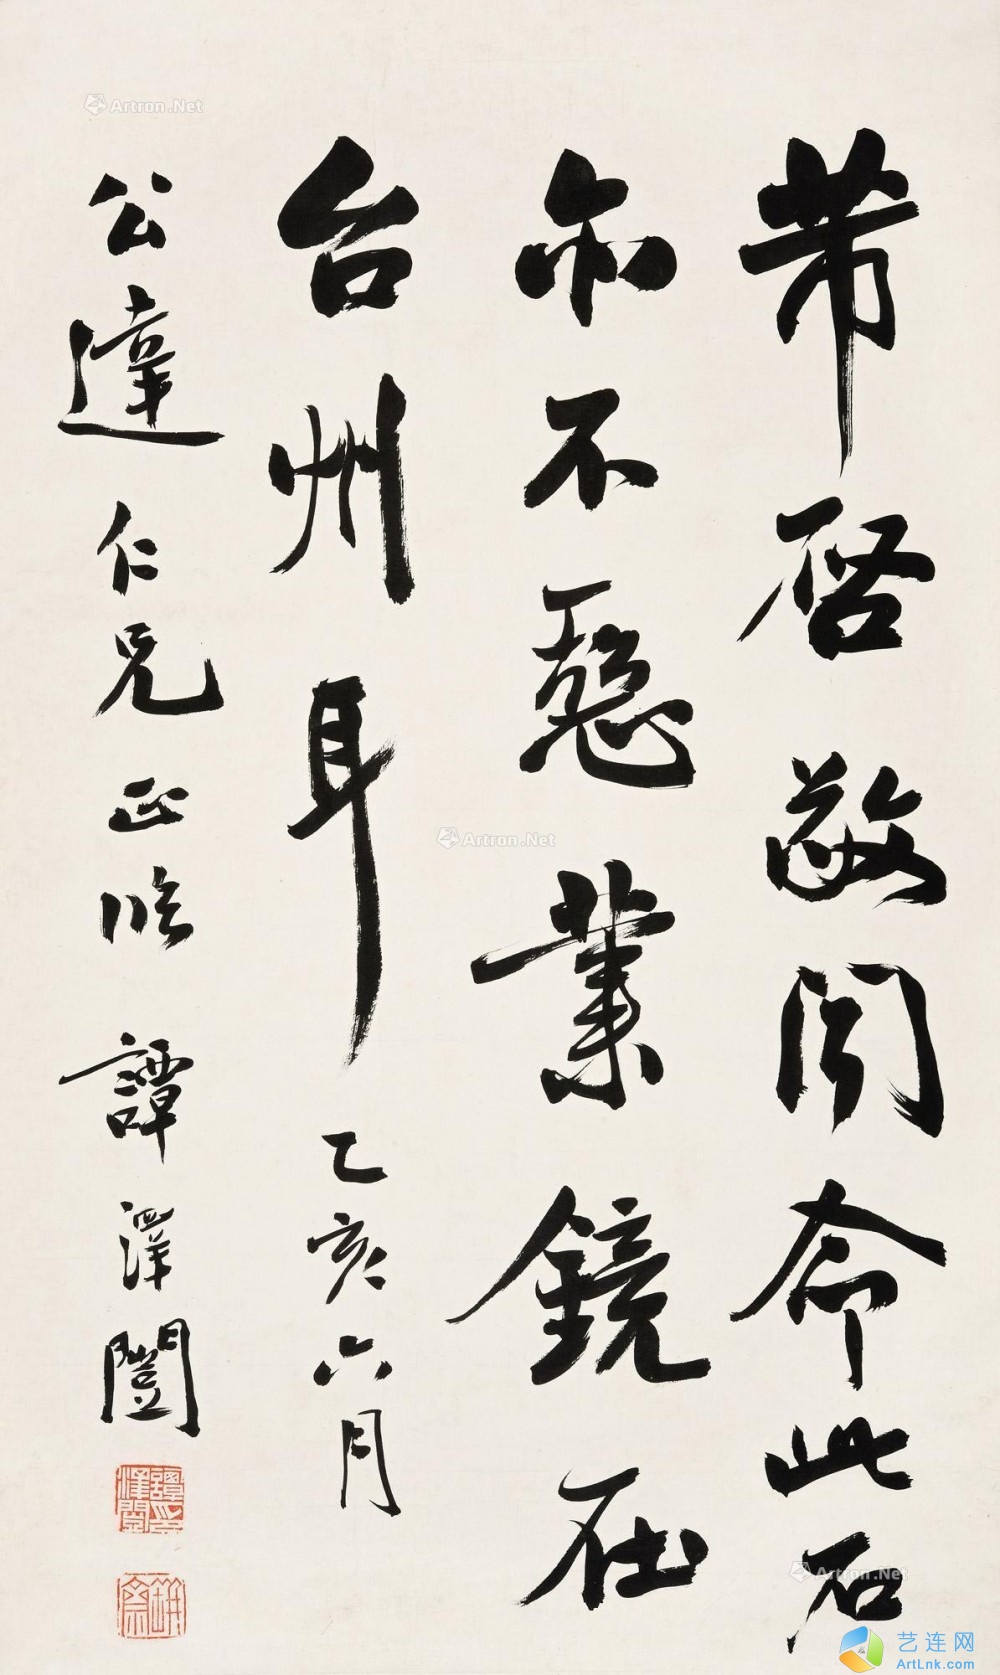 芾启敬聞命此石
尒不惡業鏡在
台州耳 乙亥六月
公達仁兄正临 譚澤闓
譚澤闓印
缾齋
Artron.Net
Artron.Net
Artron.Net
艺连网
ArtLnk.com